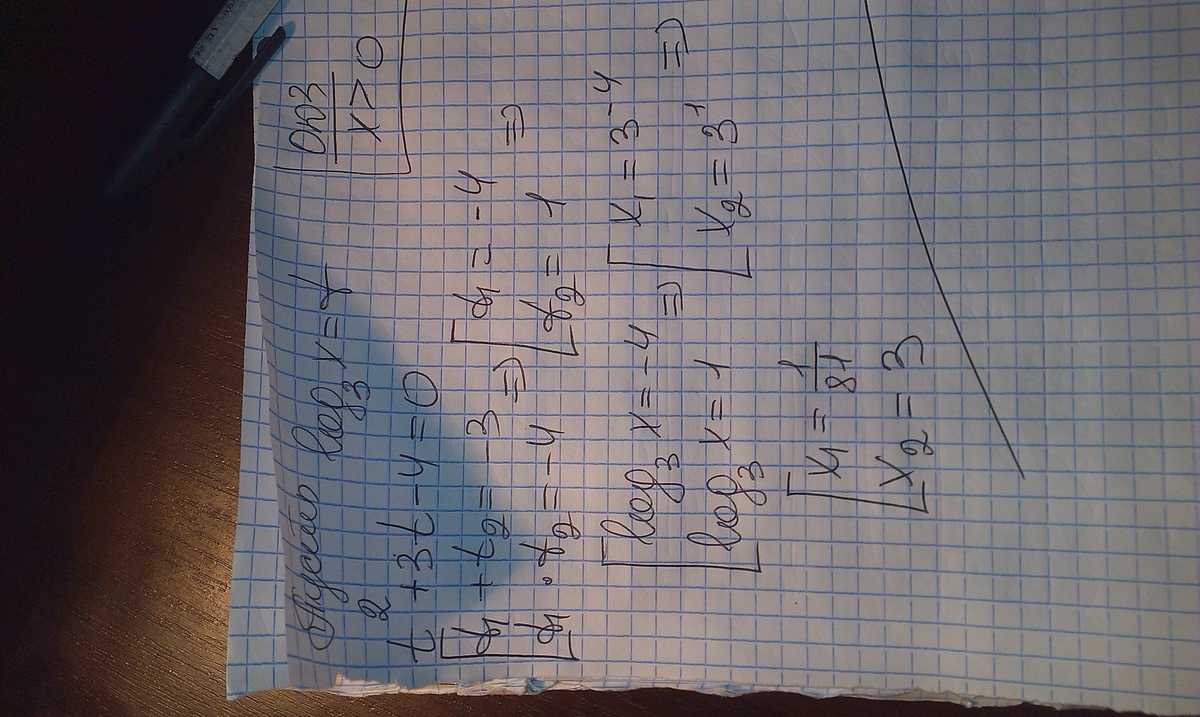 Пусть log₃ x = t
ОДЗ
x > 0
t² + 3t - 4 = 0
[ t₁ + t₂ = -3 ⇒ [ t₁ = -4
t₁ · t₂ = -4 t₂ = 1 ⇒
[ log₃ x = -4 ⇒ [ x₁ = 3⁻⁴
log₃ x = 1 x₂ = 3¹ ⇒
[ x₁ = 1/81
x₂ = 3